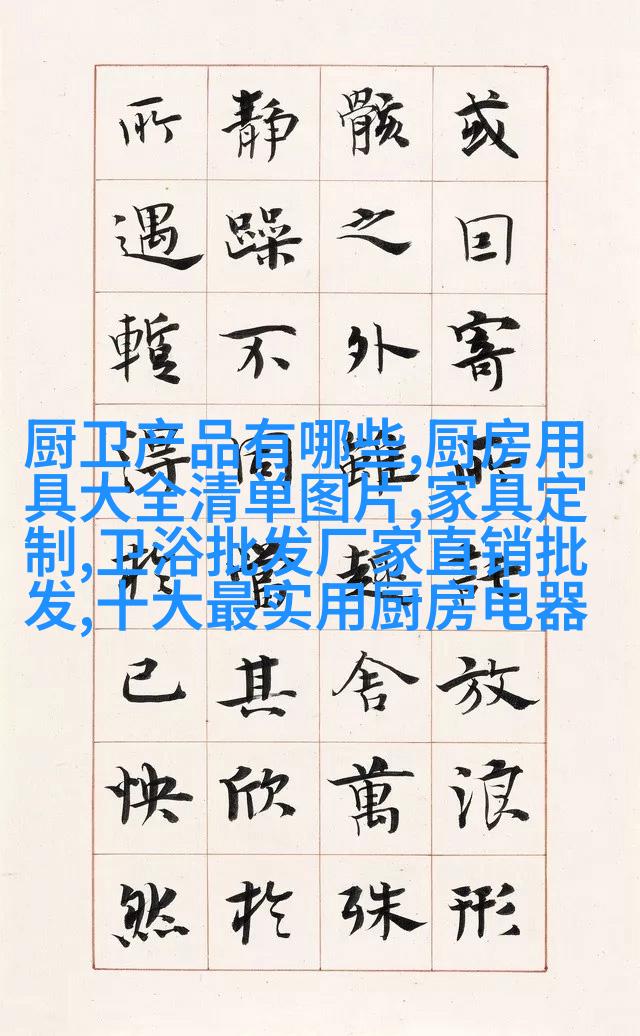 或囙寄所託放浪形
骸之外雖趣舍萬殊
靜躁不同當其欣於
所遇暫得於己怏然
厨卫产品有哪些,厨房用
具大全清单图片,家具定
制,卫浴批发厂家直销批
发,十大最实用厨房电器